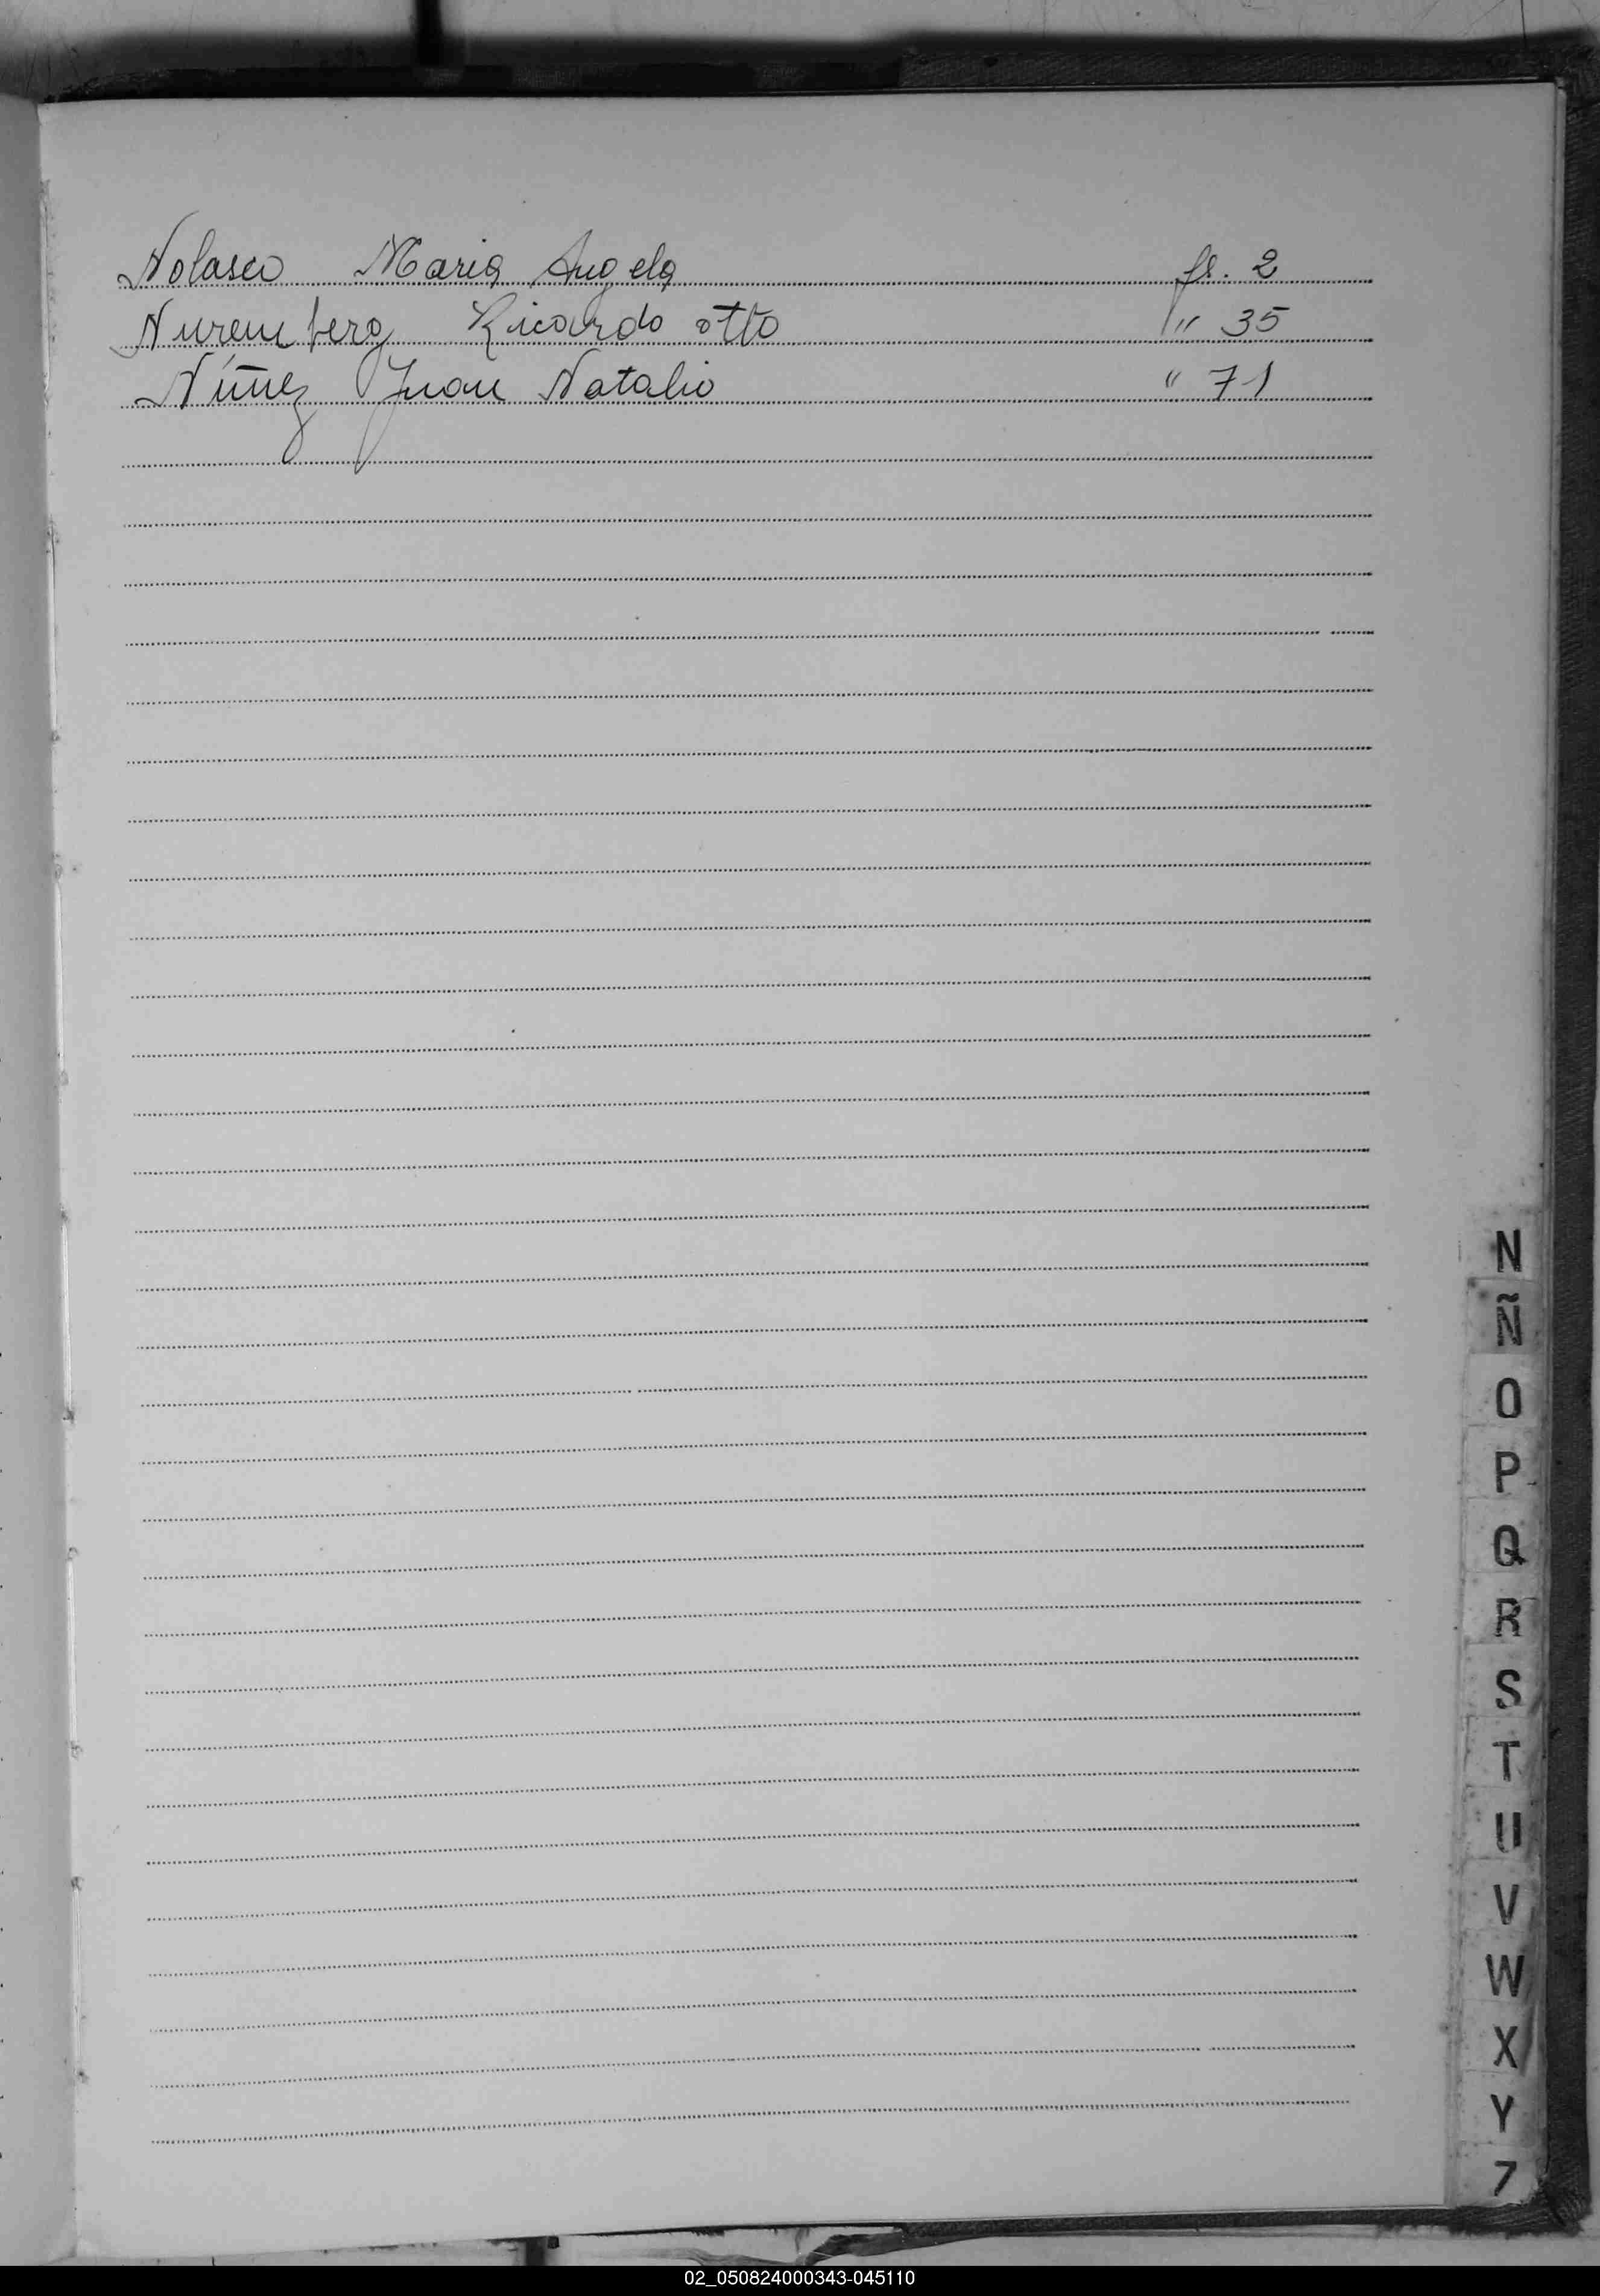 Nolasco Maria Angela fs. 2
Nuremberg Ricardo otto " 35
Núñez Juan Natalio " 71
N
Ñ
O
P
Q
R
S
T
U
V
W
X
Y
Z
02_050824000343-045110